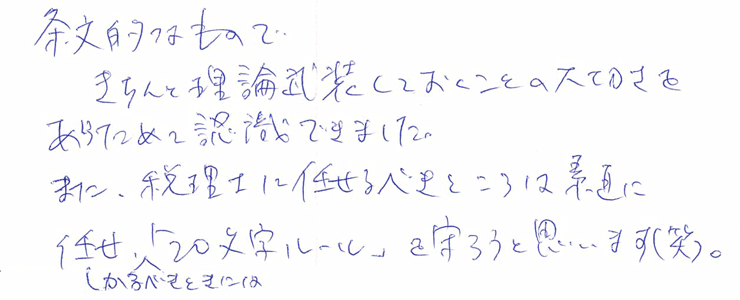 条文的なもので
きちんと理論武装しておくことの大切さを
あらためて認識できました。
また、税理士に任せるべきところは素直に
任せ、「20文字ルール」を守ろうと思います(笑)。
しかるべきときには